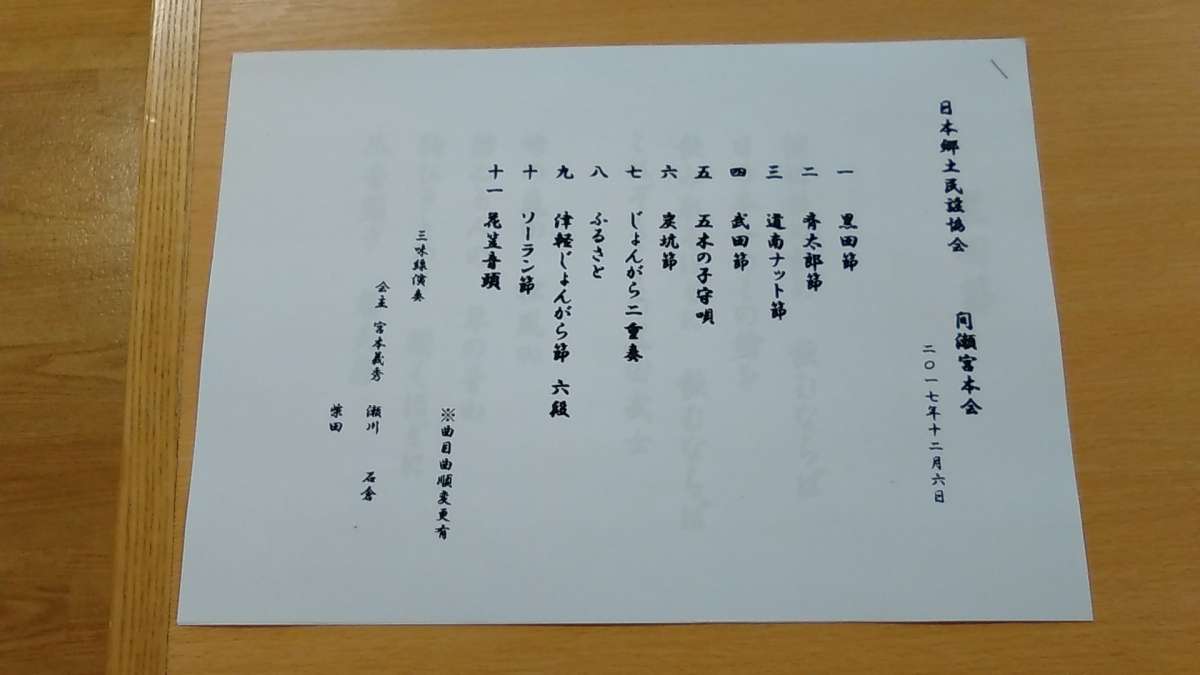 日本郷土民謡協会　間瀬宮本会
二〇一七年十二月六日
一　黒田節
二　斉太郎節
三　道南ナット節
四　武田節
五　五木の子守唄
六　炭坑節
七　じょんがら二重奏
八　ふるさと
九　津軽じょんがら節　六段
十　ソーラン節
十一　花笠音頭
※曲目曲順変更有
三味線演奏
会主　宮本義秀　瀬川　石倉
柴田